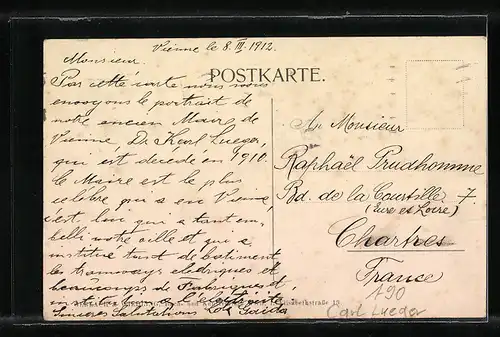 Vienne le 8. III. 1912.
Monsieur.
POSTKARTE.
Par cette carte nous vous
envoyons le portrait de
notre ancien Maire de
Vienne, Dr Karl Lueger,
qui est décédé en 1910.
Le Maire est le plus
célèbre qui a en Vienne,
c'est lui qui a tant em-
belli notre ville et qui a
institué tant de batiments
les tramways electriques et
beaucoups de Fabriques et
Sinceres Salutations
A. Monsieur
Raphaël Prudhomme
Bd. de la Courtille 7
(Eure et Loire)
Chartres
France
A90
Carl Lueger